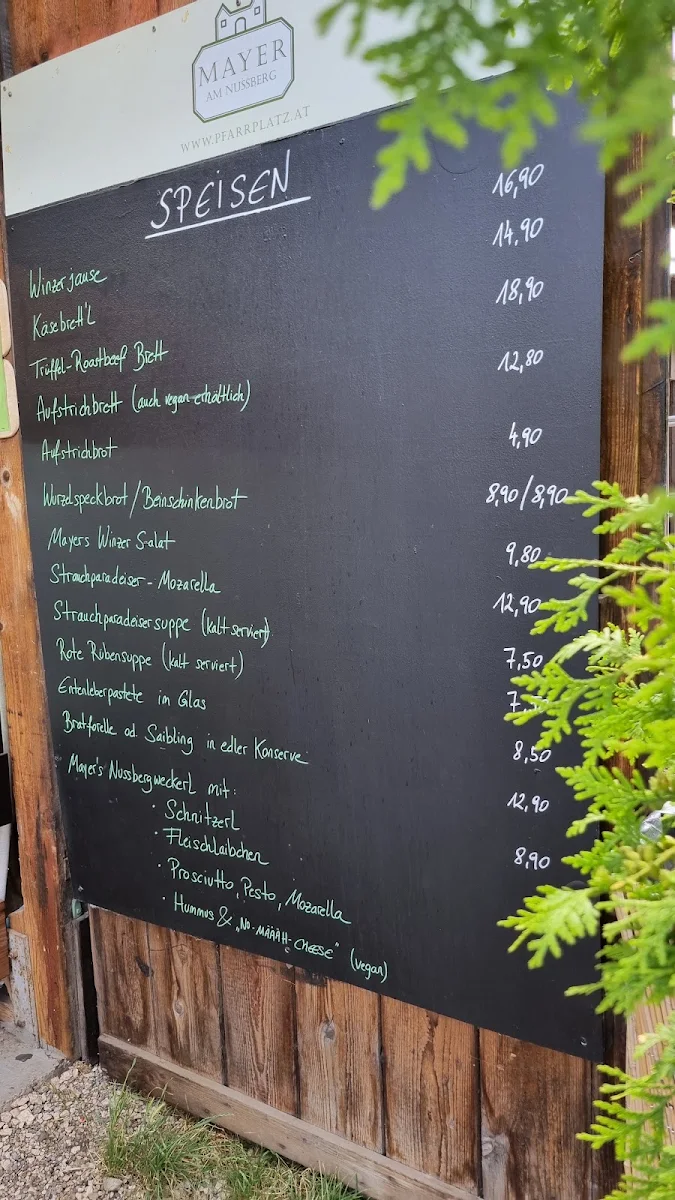 MAYER
AM NUSSBERG
WWW.PFARRPLATZ.AT
SPEISEN
Winzerjause 16,90
Käsebrett'l 14,90
Trüffel-Roastbeef Brett 18,90
Aufstrichbrett (auch vegan erhältlich) 12,80
Aufstrichbrot 4,90
Wurzelspeckbrot/Beinschinkenbrot 8,90/8,90
Mayers Winzer Salat 9,80
Strauchparadeiser-Mozarella 12,90
Strauchparadeisersuppe (kalt serviert) 7,50
Rote Rübensuppe (kalt serviert)
Entenleberpastete im Glas 8,50
Bratforelle od. Saibling in edler Konserve 12,90
Mayer's Nussbergweckerl mit: 8,90
· Schnitzerl
· Fleischlaibchen
· Prosciutto, Pesto, Mozarella
· Hummus & „No-MÄÄÄH-CHEESE" (vegan)